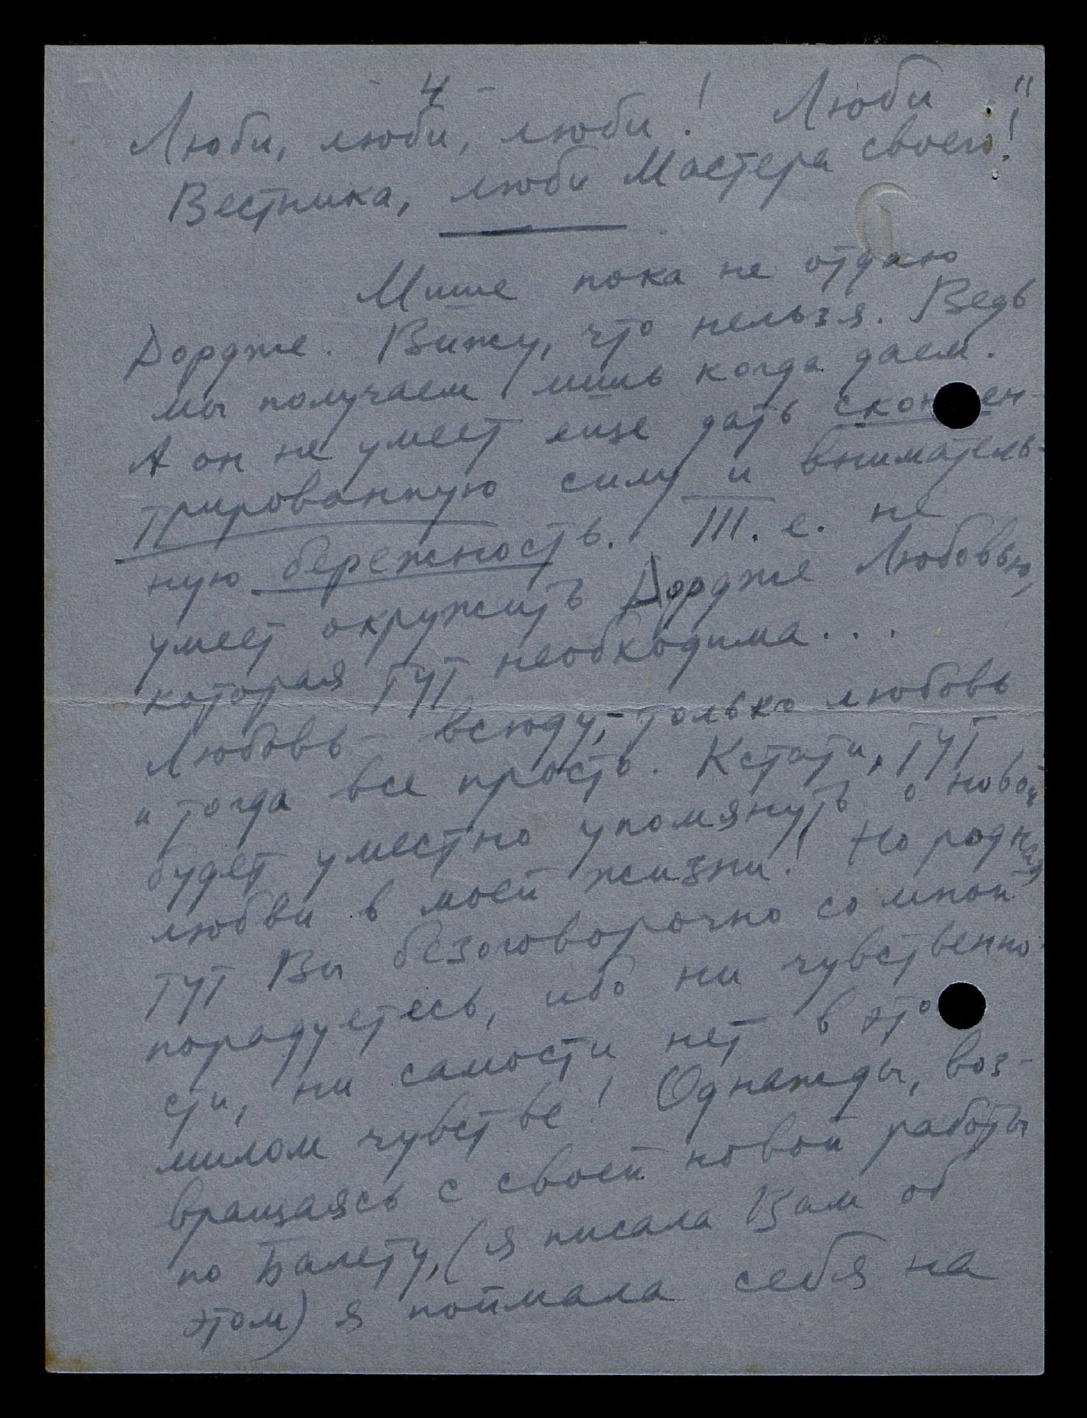 4 -
Люби, люби, люби! Люби
Вестника, люби Мастера своего!"
Мише пока не отдаю
Дордже. Вижу, что нельзя. Ведь
мы получаем лишь когда даем.
А он не умеет еще дать скон ен-
трированную силу и вниматель-
ную бережность. Т. е. не
умеет окружить Дордже Любовью,
которая тут необходима...
Любовь - всюду, - только любовь
и тогда все просто. Кстати, тут
будет уместно упомянуть о новой
любви в моей жизни! Но родная
тут Вы безоговорочно со мной
порадуетесь, ибо ни чувственно-
сти, ни самости нет в это
милом чувстве! Однажды, воз-
вращаясь с своей новой работы
по Балету, (я писала Вам об
этом) я поймала себя на